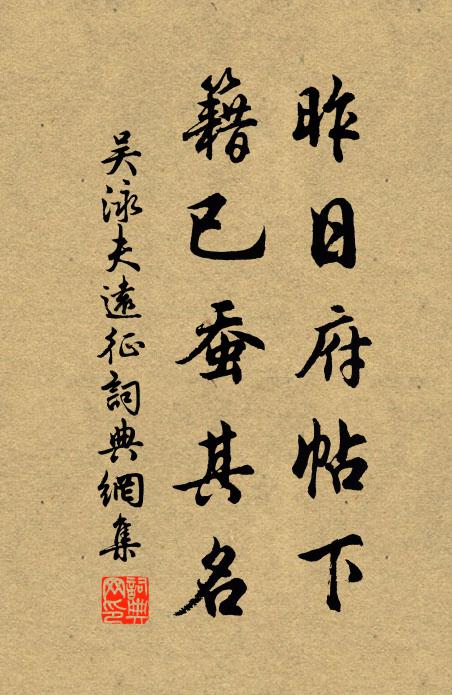 昨日府帖下
籍已蚤其名
吴泳夫遠征詞典網集
詞典网印